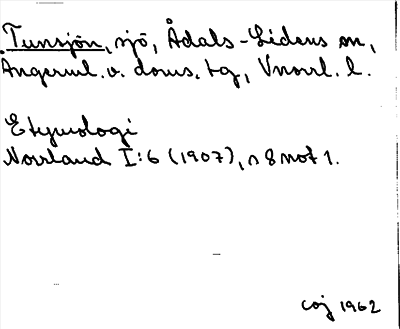 Tunsjön, sjö, Ådals-Lidens sn,
Ångerml. v. doms. tg, Vnorrl. l.
Etymologi
Norrland I:6 (1907), s 8 not 1.
COJ 1962